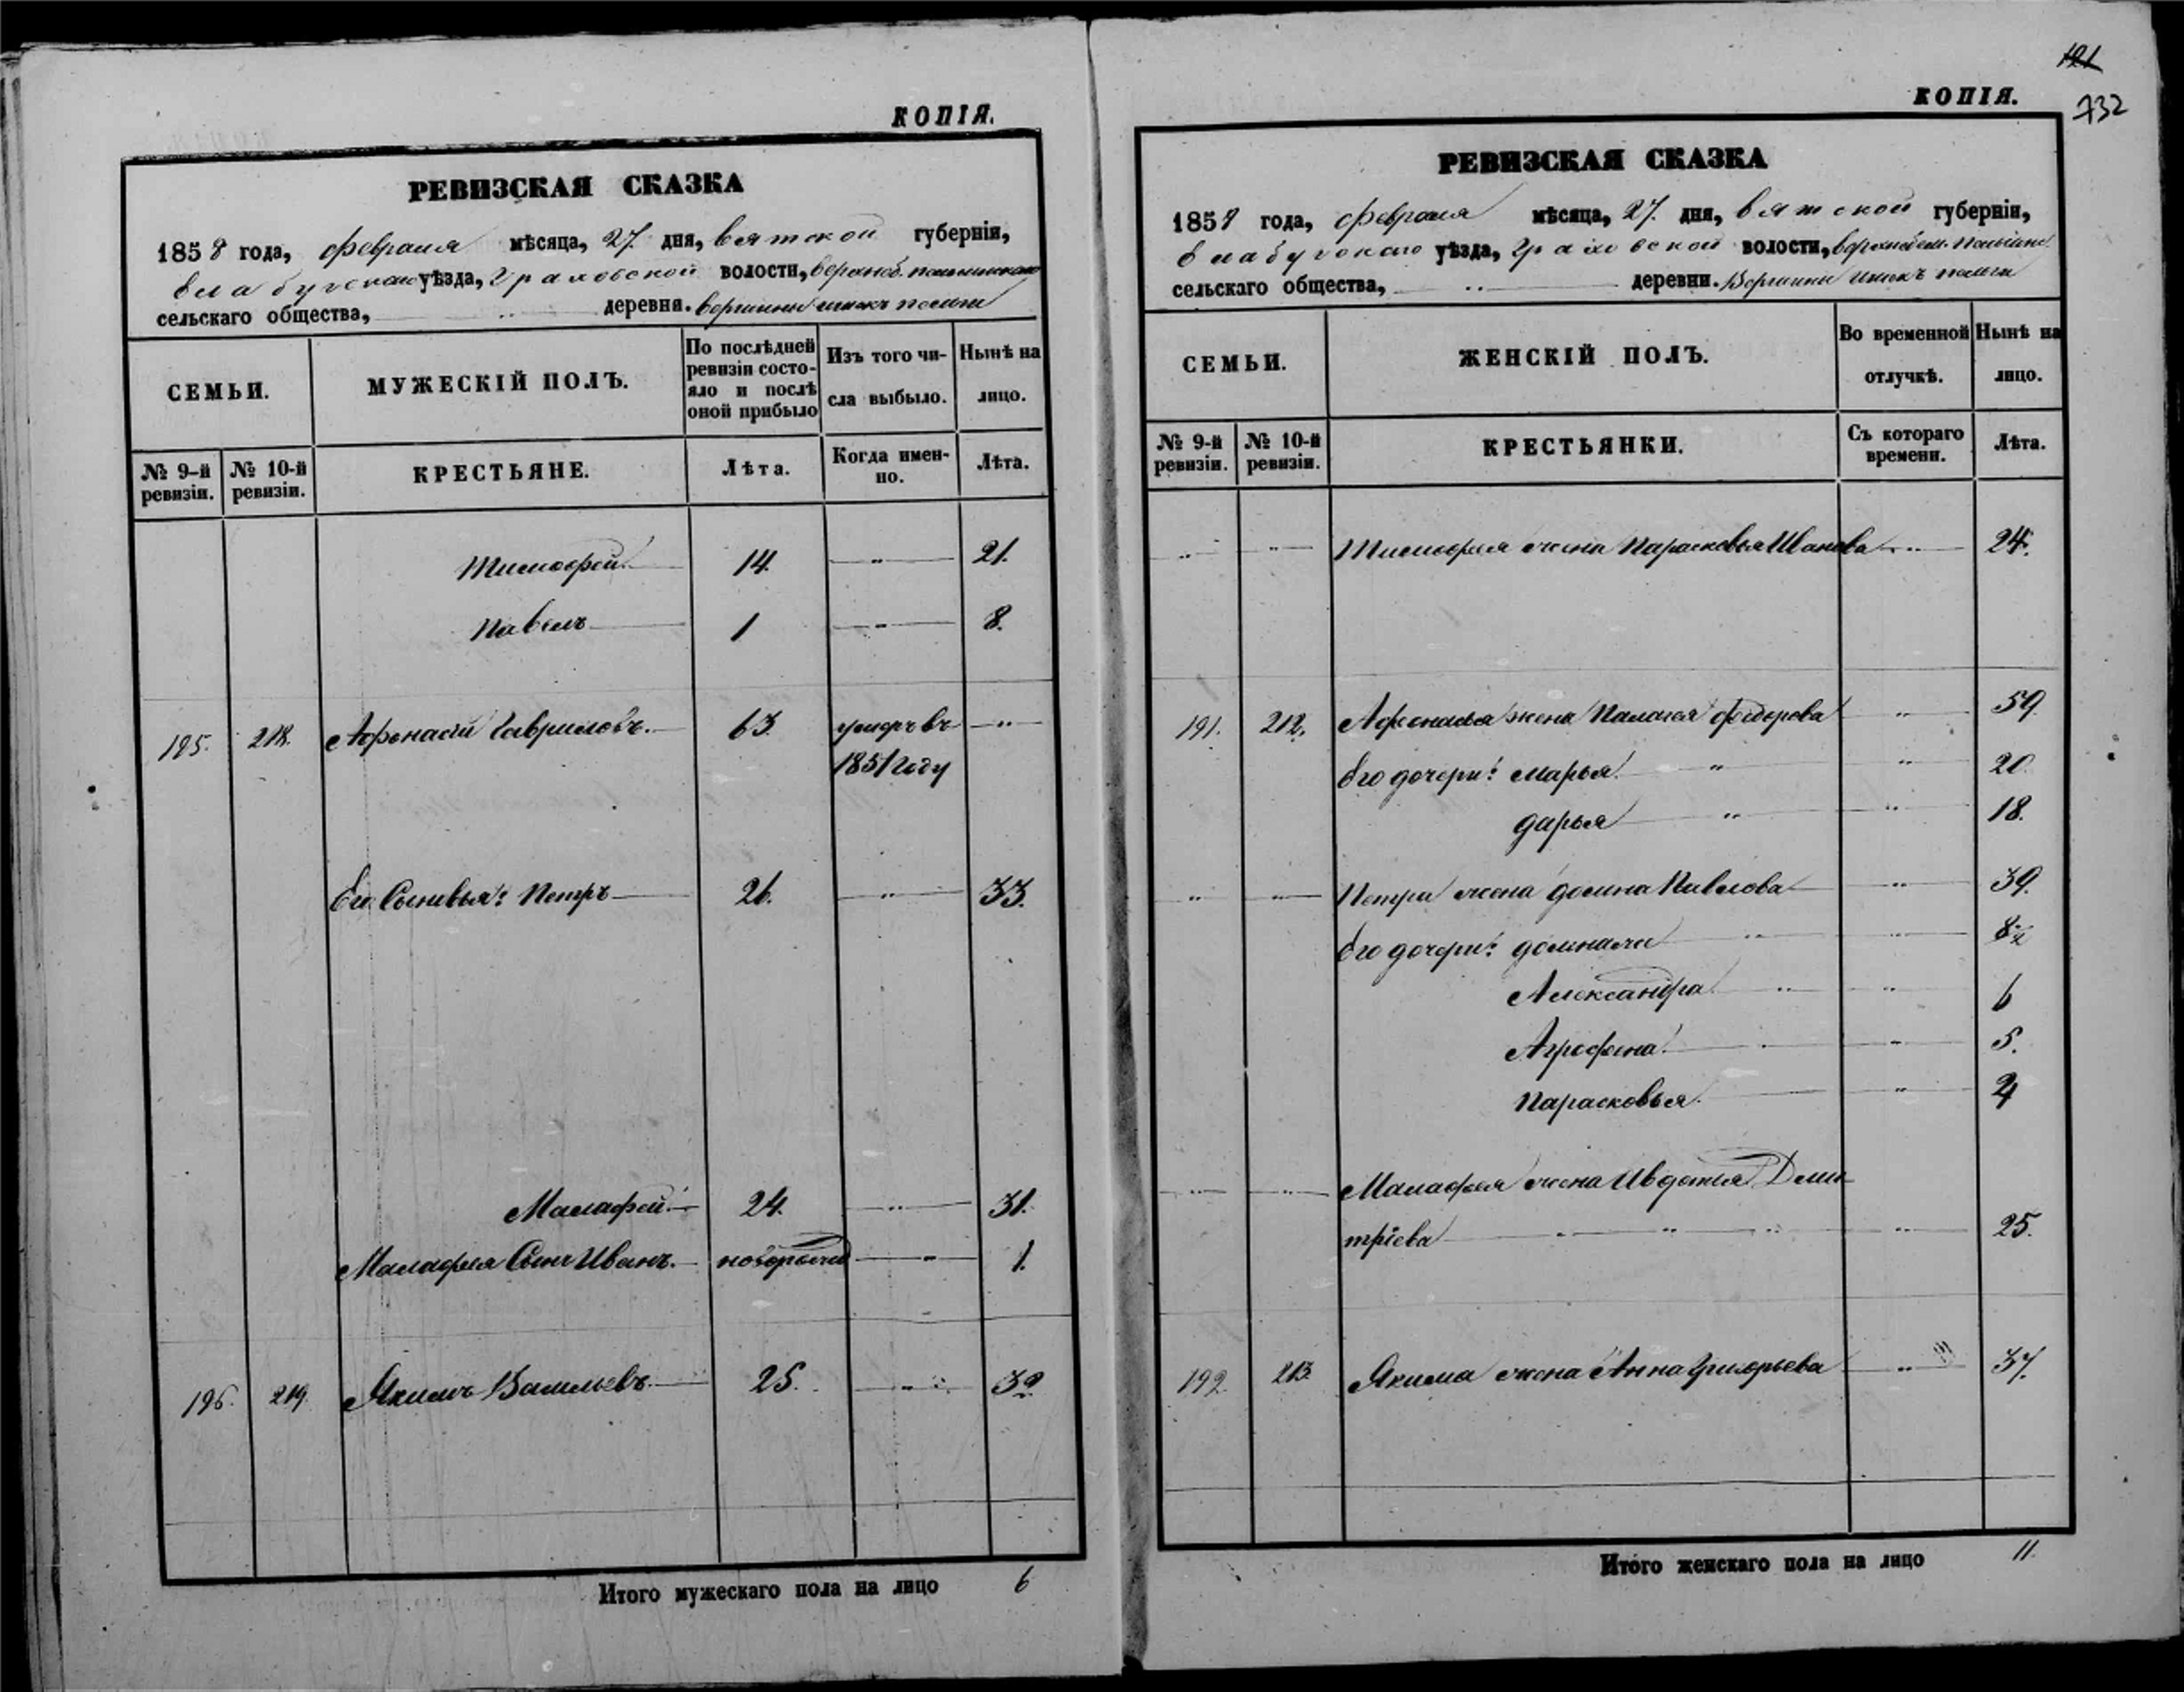 КОПІЯ.
РЕВИЗСКАЯ СКАЗКА
1858 года, февраля мѣсяца, 27. дня, вятской губерніи,
елабугскаго уѣзда, граховской волости,
сельскаго общества, деревни.
СЕМЬИ.
МУЖЕСКІЙ ПОЛЪ.
По послѣдней ревизіи состо-
яло и послѣ оной прибыло
Изъ того чи-
сла выбыло.
Нынѣ на
лицо.
№ 9-й ревизіи.
№ 10-й ревизіи.
КРЕСТЬЯНЕ.
Лѣта.
Когда имен-
но.
Лѣта.
Тимофей. 14. 21.
Павелъ 1 8.
195. 218. Афонасій Гавриловъ. 63. умеръ въ
1851 году
Его Сыновья: Петръ 26. 33.
Малафей. 24. 31.
Малафея Сынъ Иванъ. 1.
196. 219. Якимъ Васильевъ. 25. 32.
Итого мужескаго пола на лицо 6
121
732
КОПІЯ.
РЕВИЗСКАЯ СКАЗКА
1858 года, февраля мѣсяца, 27. дня, вятской губерніи,
елабугскаго уѣзда, граховской волости,
сельскаго общества, деревни.
СЕМЬИ.
ЖЕНСКІЙ ПОЛЪ.
Во временной
отлучкѣ.
Нынѣ на
лицо.
№ 9-й ревизіи.
№ 10-й ревизіи.
КРЕСТЬЯНКИ.
Съ котораго
времени.
Лѣта.
Тимофея жена Парасковья Иванова 24.
191. 212. Афонасья жена Палагея федорова 59.
Его дочери: Марья 20.
дарья 18.
Петра жена домна Павлова 39.
Его дочери: 8
Александра 6
Агрофена 5.
Парасковья
Малафея жена Ивдотья Дми-
тріева 25.
192. 213. Якима жена Анна Григорьева 37.
Итого женскаго пола на лицо 11.